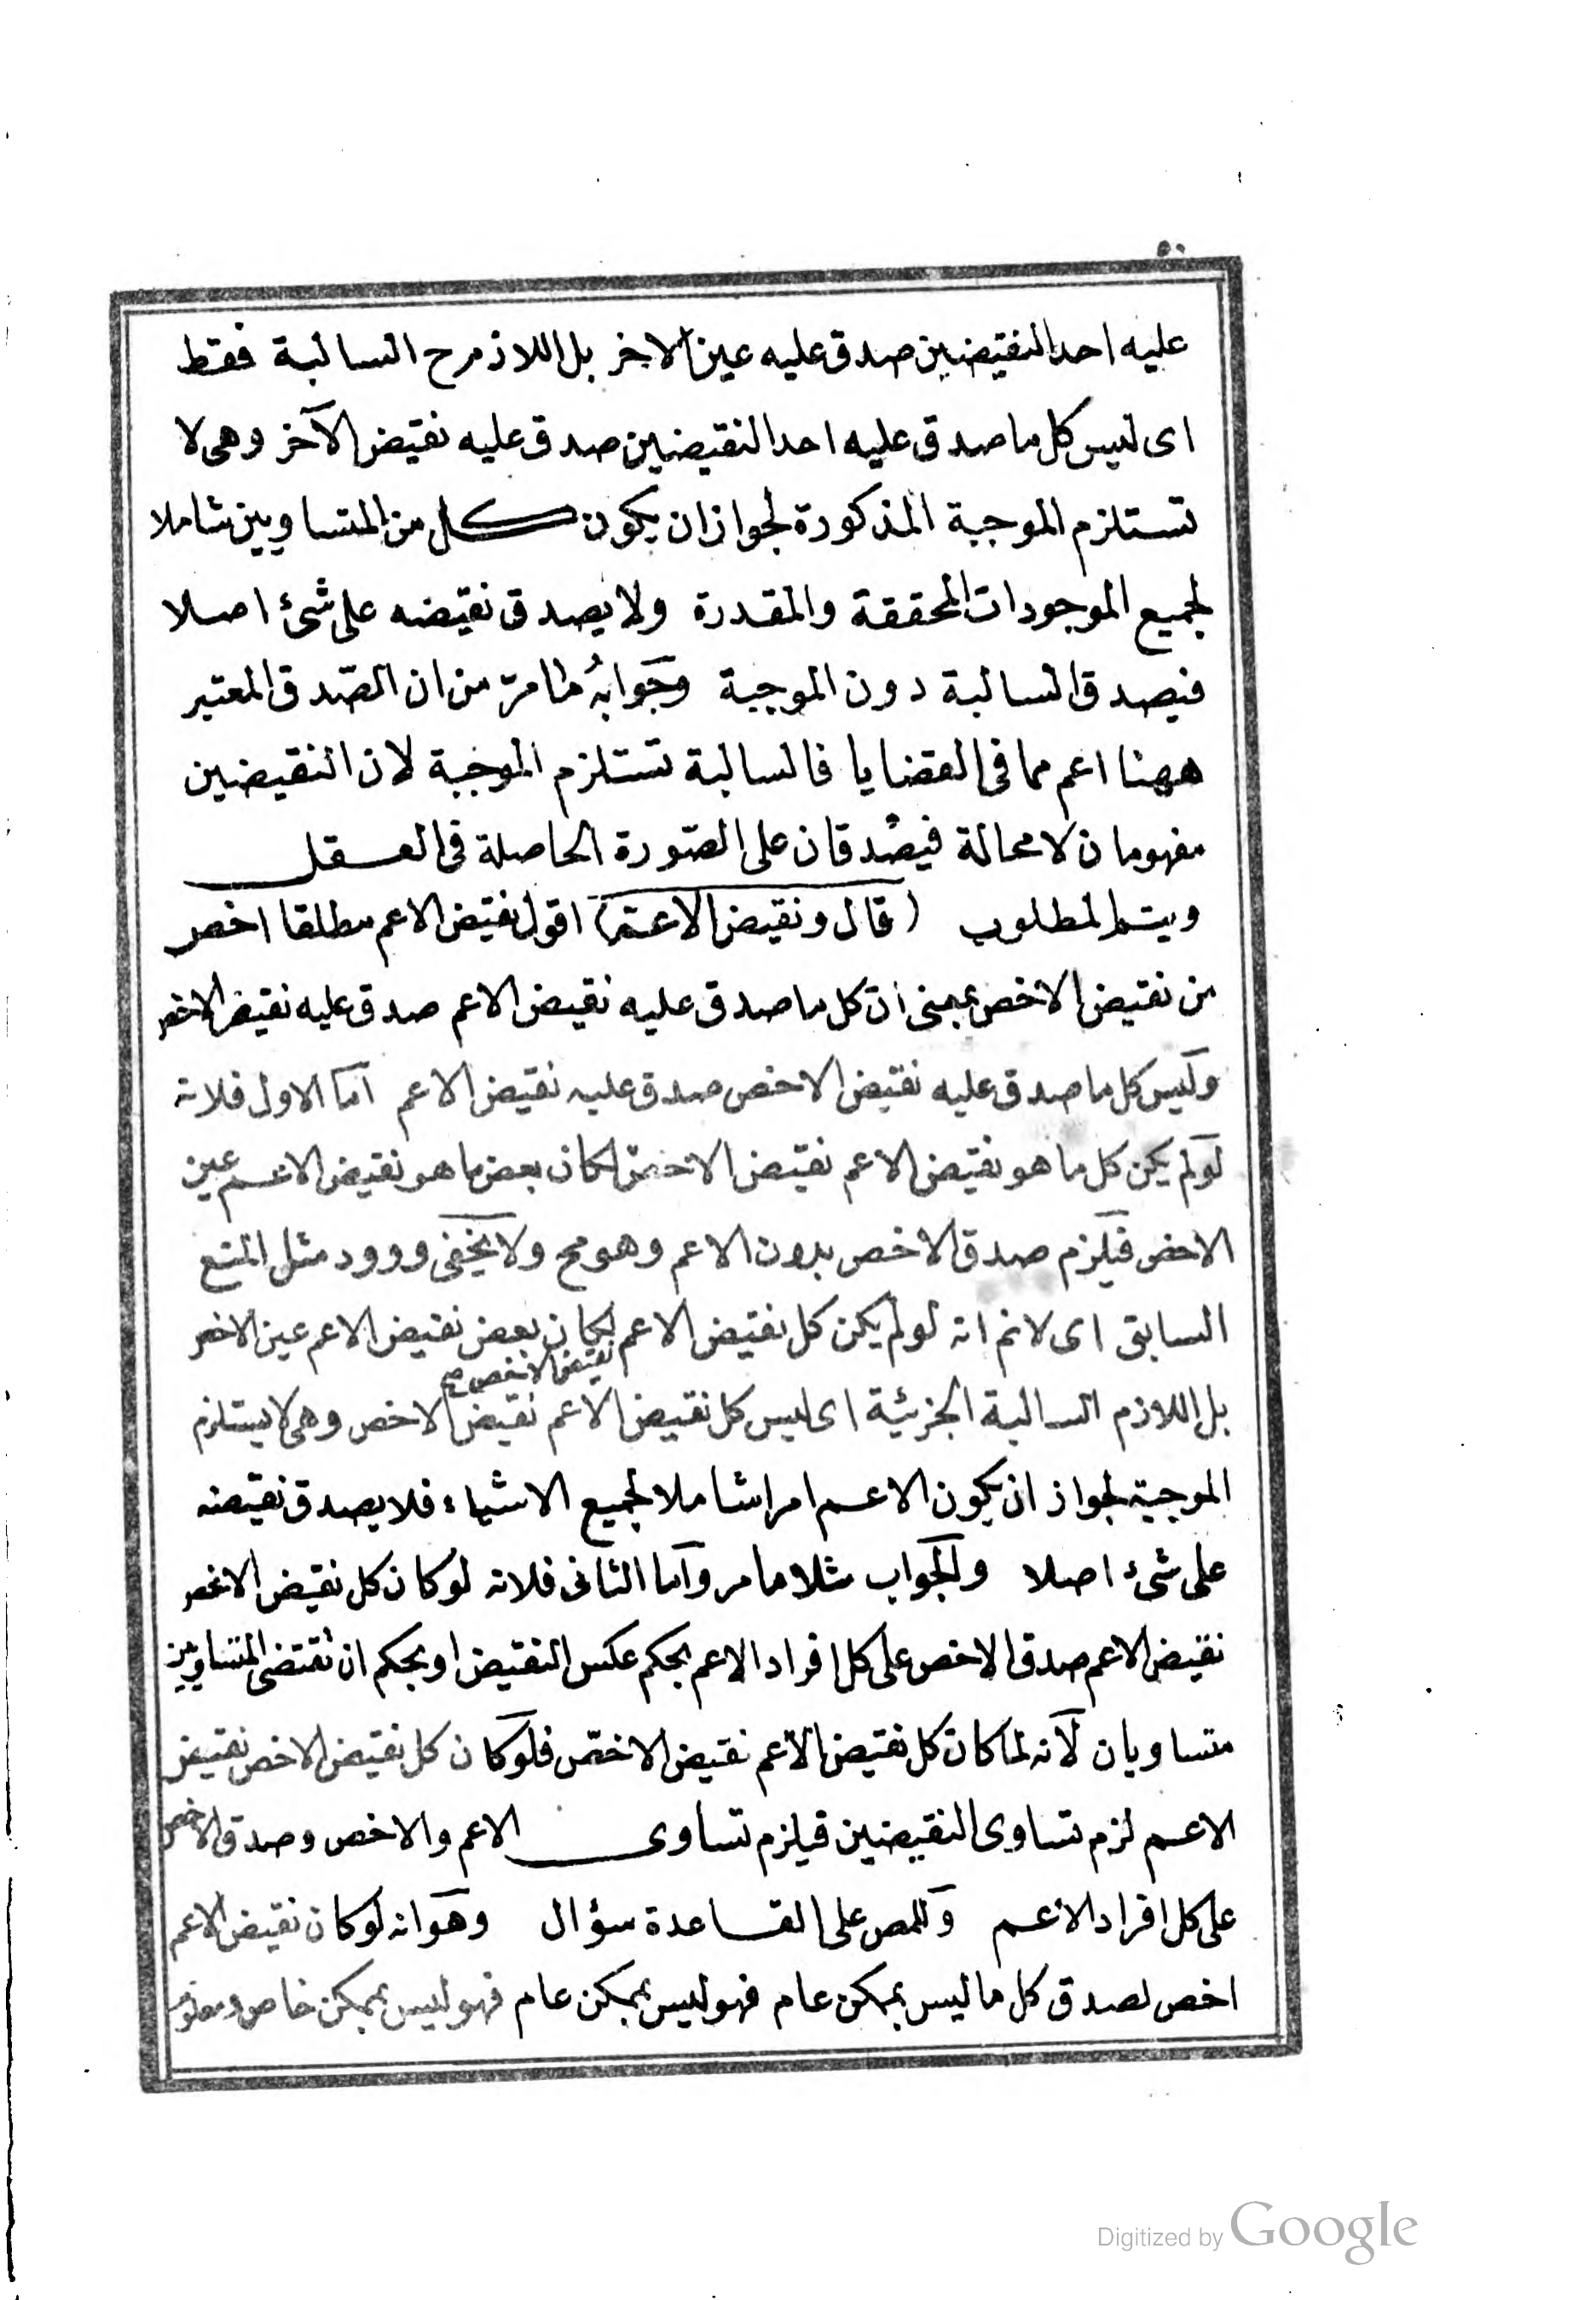 ٥٠
عليه احد النقيضين صدق عليه عين الاخر بل اللازم ح السالبة فقط
اى ليس كل ما صدق عليه احد النقيضين صدق عليه نقيض الآخر وهى لا
تستلزم الموجبة المذكورة لجواز ان يكون كل من المتساويين شاملا
لجميع الموجودات المحققة والمقدرة ولا يصدق نقيضه على شئ اصلا
فيصدق السالبة دون الموجبة وجوابهُ ما مرّ من ان الصّدق المعتبر
ههنا اعم مما فى القضايا فالسالبة تستلزم الموجبة لان النقيضين
مفهومان لا محالة فيصْدقان على الصّورة الحاصلة فى العقل
ويتم المطلوب (قال ونقيض الاعمّ) اقول نقيض الاعم مطلقا اخص
من نقيض الاخص بمعنى ان كل ما صدق عليه نقيض الاعم صدق عليه نقيض الاخص
وليس كل ما صدق عليه نقيض الاخص صدق عليه نقيض الاعم اما الاول فلانه
لو لم يكن كل ما هو نقيض الاعم نقيض الاخصّ لكان بعض ما هو نقيض الاعم عين
الاخص فيلزم صدق الاخص بدون الاعم وهو مح ولا يخفى وورد مثل المنع
السابق اى لانم انه لو لم يكن كل نقيض الاعم لكان بعض نقيض الاعم عين الاخص
نقيض الاخص صح
بل اللازم السالبة الجزئية اى ليس كل نقيض الاعم نقيض الاخص وهى لا يستلزم
الموجبة لجواز ان يكون الاعم امرا شاملا لجميع الاشياء فلا يصدق نقيضه
على شئ اصلا والجواب مثلا ما مر واما الثانى فلانه لو كان كل نقيض الاخص
نقيض الاعم صدق الاخص على كل افراد الاعم بحكم عكس النقيض او بحكم ان نقتضى المتساويين
متساويان لانه لما كان كل نقيض الاعم نقيض الاخصّ فلو كان كل نقيض الاخص نقيض
الاعم لزم تساوى النقيضين فيلزم تساوى الاعم والاخص وصدق الاخص
على كل افراد الاعم وللمص على القاعدة سؤال وهو انه لو كان نقيض الاعم
اخص لصدق كل ما ليس بممكن عام فهو ليس بممكن عام فهو ليس بممكن خاص ومعلوم
Digitized by Google